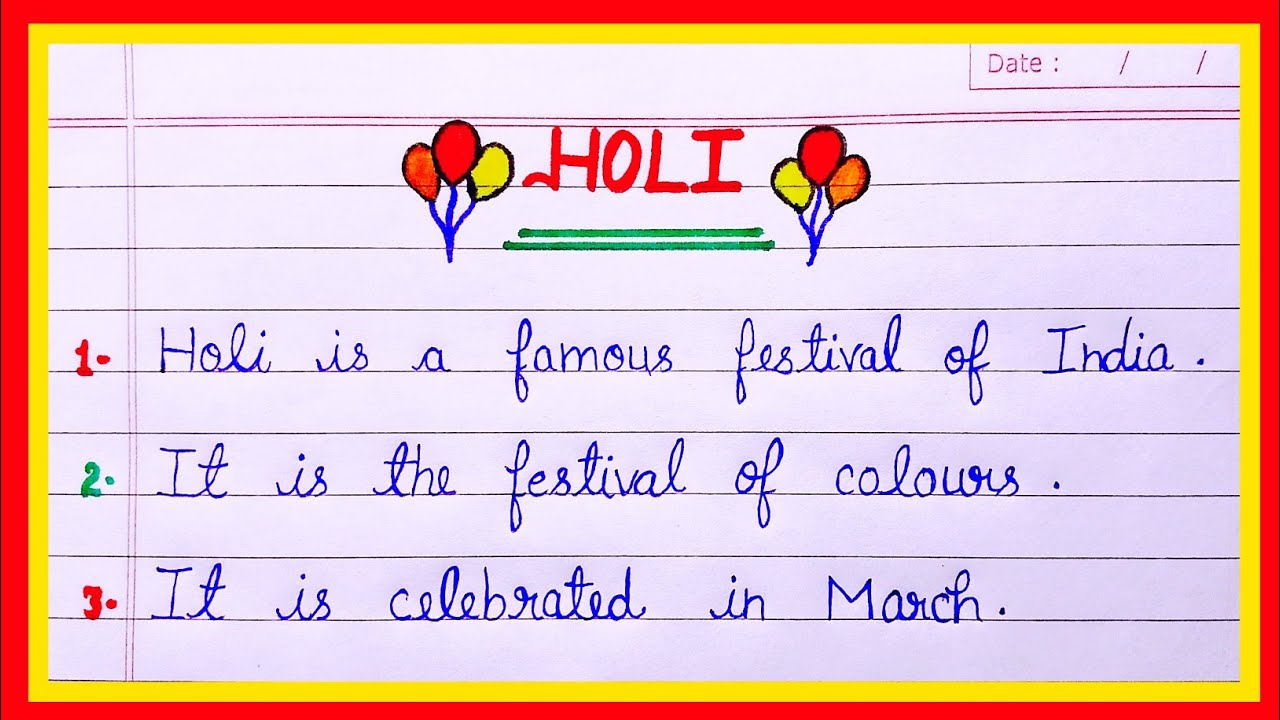 Date : / /
HOLI
1. Holi is a famous festival of India.
2. It is the festival of colours.
3. It is celebrated in March.